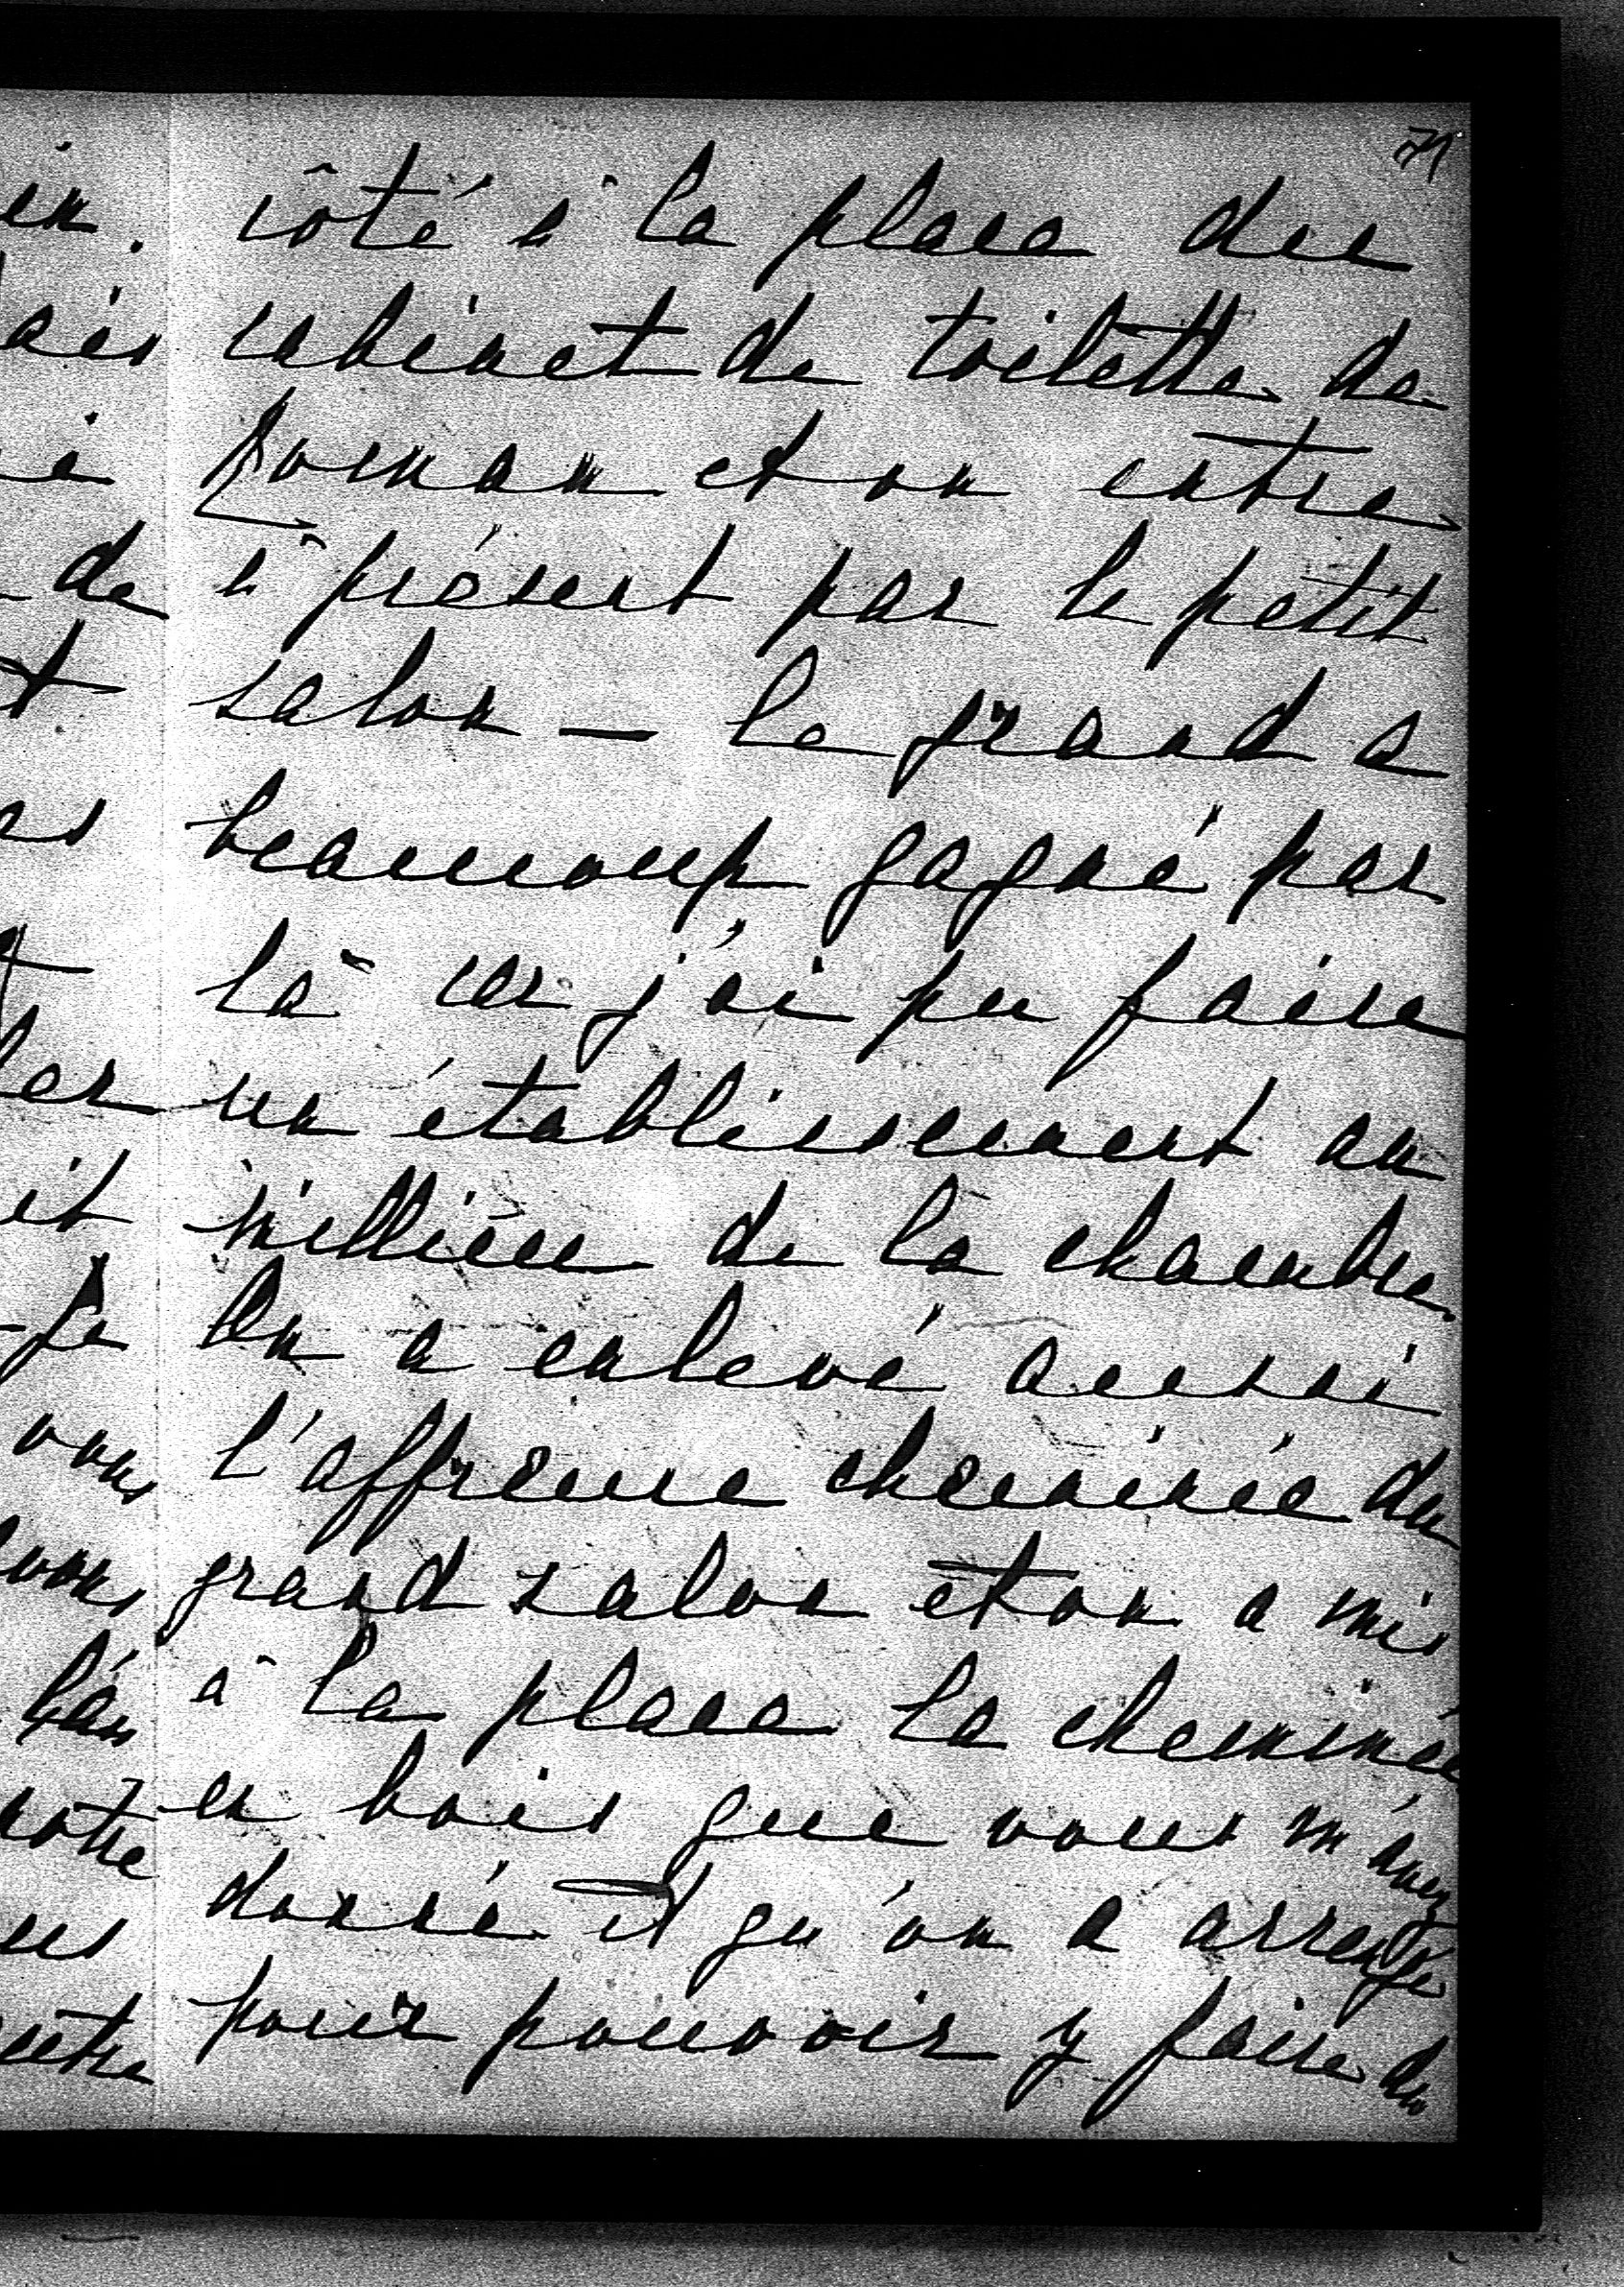 71
côté à la place du
cabinet de toilette de
Roman et on entre
à présent par le petit
salon — le grand a
beaucoup gagné par
là car j'ai pu faire
un établissement au
millieu de la chambre.
On a enlevé aussi
l'affreuse cheminée du
grand salon et on a mis
à la place la cheminée
en bois que vous m'avez
donné et qu'on a arrangé
pour pouvoir y faire du